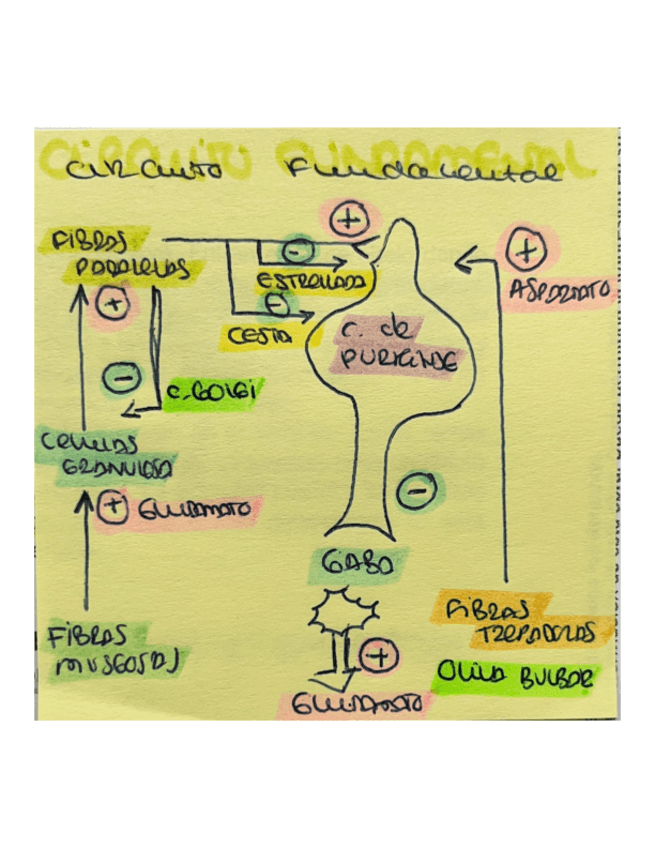 CIRCUITO FUNDAMENTAL
Circuito Fundamental
FIBRAS
PARALELAS
+
-
+
ESTRELLADA
ASPARTATO
+
-
CESTA
C. de
PURKINJE
-
C. GOLGI
CELULAS
GRANULOSA
-
+ GLUTAMATO
GABA
FIBRAS
TREPADORAS
FIBRAS
MUSGOSAS
+
OLIVA BULBAR
GLUTAMATO